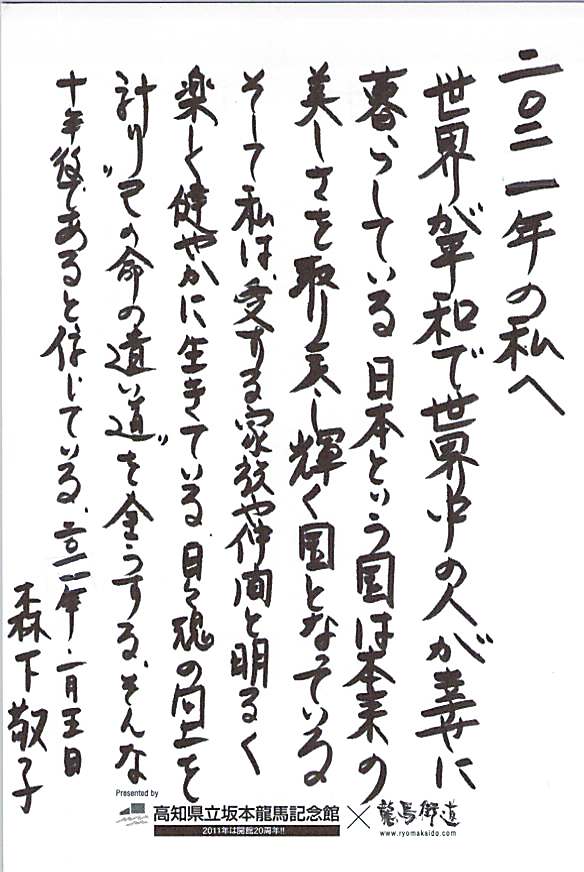 二〇二一年の私へ
世界が平和で世界中の人が幸せに
暮らしている 日本という国は本来の
美しさを取り戻し輝く国となっている
そして私は、愛する家族や仲間と明るく
楽しく健やかに生きている。日々魂の向上を
計り〝この命の遣い道〟を全うする、そんな
十年後であると信じている。二〇一一年一月五日
森下敬子
Presented by
高知県立坂本龍馬記念館 × 龍馬街道
2011年は開館20周年!!
www.ryomakaido.com